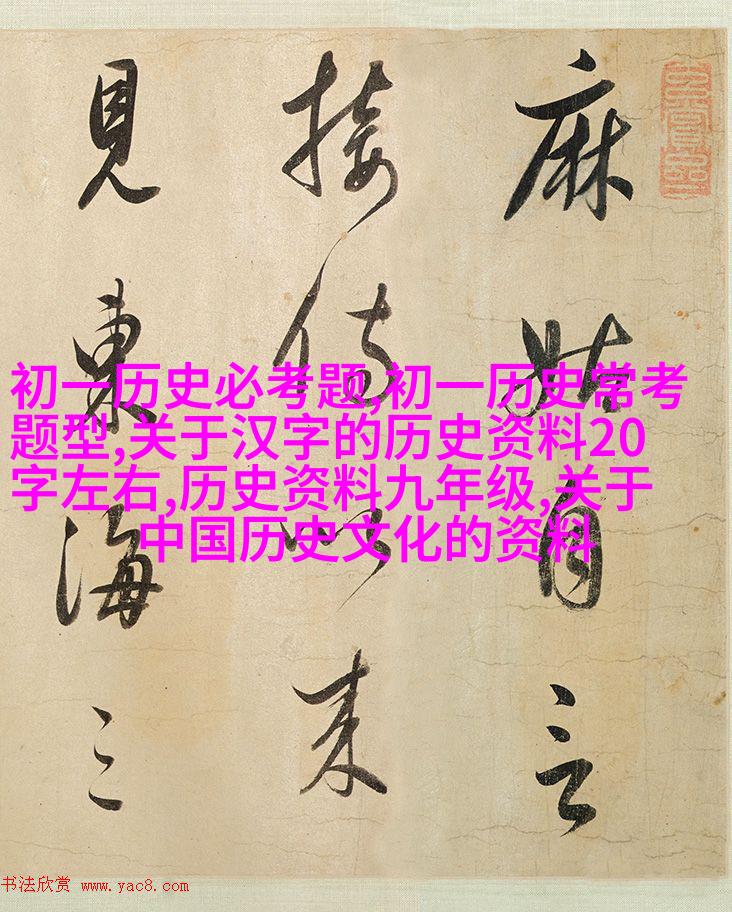 麻姑自言
接侍以来
見東海三
初一历史必考题,初一历史常考
题型,关于汉字的历史资料20
字左右,历史资料九年级,关于
中国历史文化的资料
书法欣赏 www.yac8.com